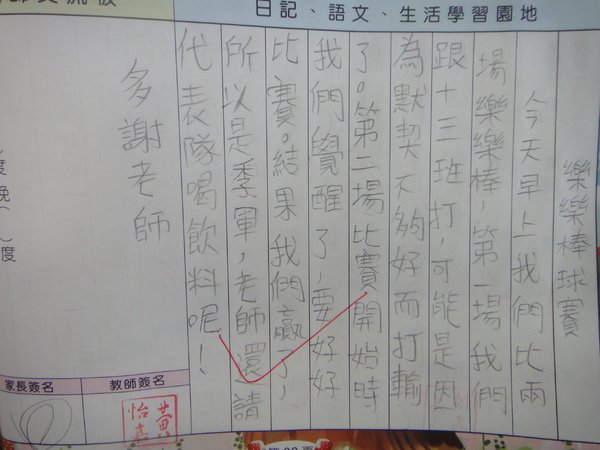 日記、語文、生活學習園地
樂樂棒球賽
今天早上我們比兩
場樂樂棒，第一場我們
跟十三班打，可能是因
為默契不夠好而打輸
了。第二場比賽開始時
我們覺醒了，要好好
比賽。結果我們贏了，
所以是季軍，老師還請
代表隊喝飲料呢！
多謝老師
家長簽名
教師簽名
黃怡嘉